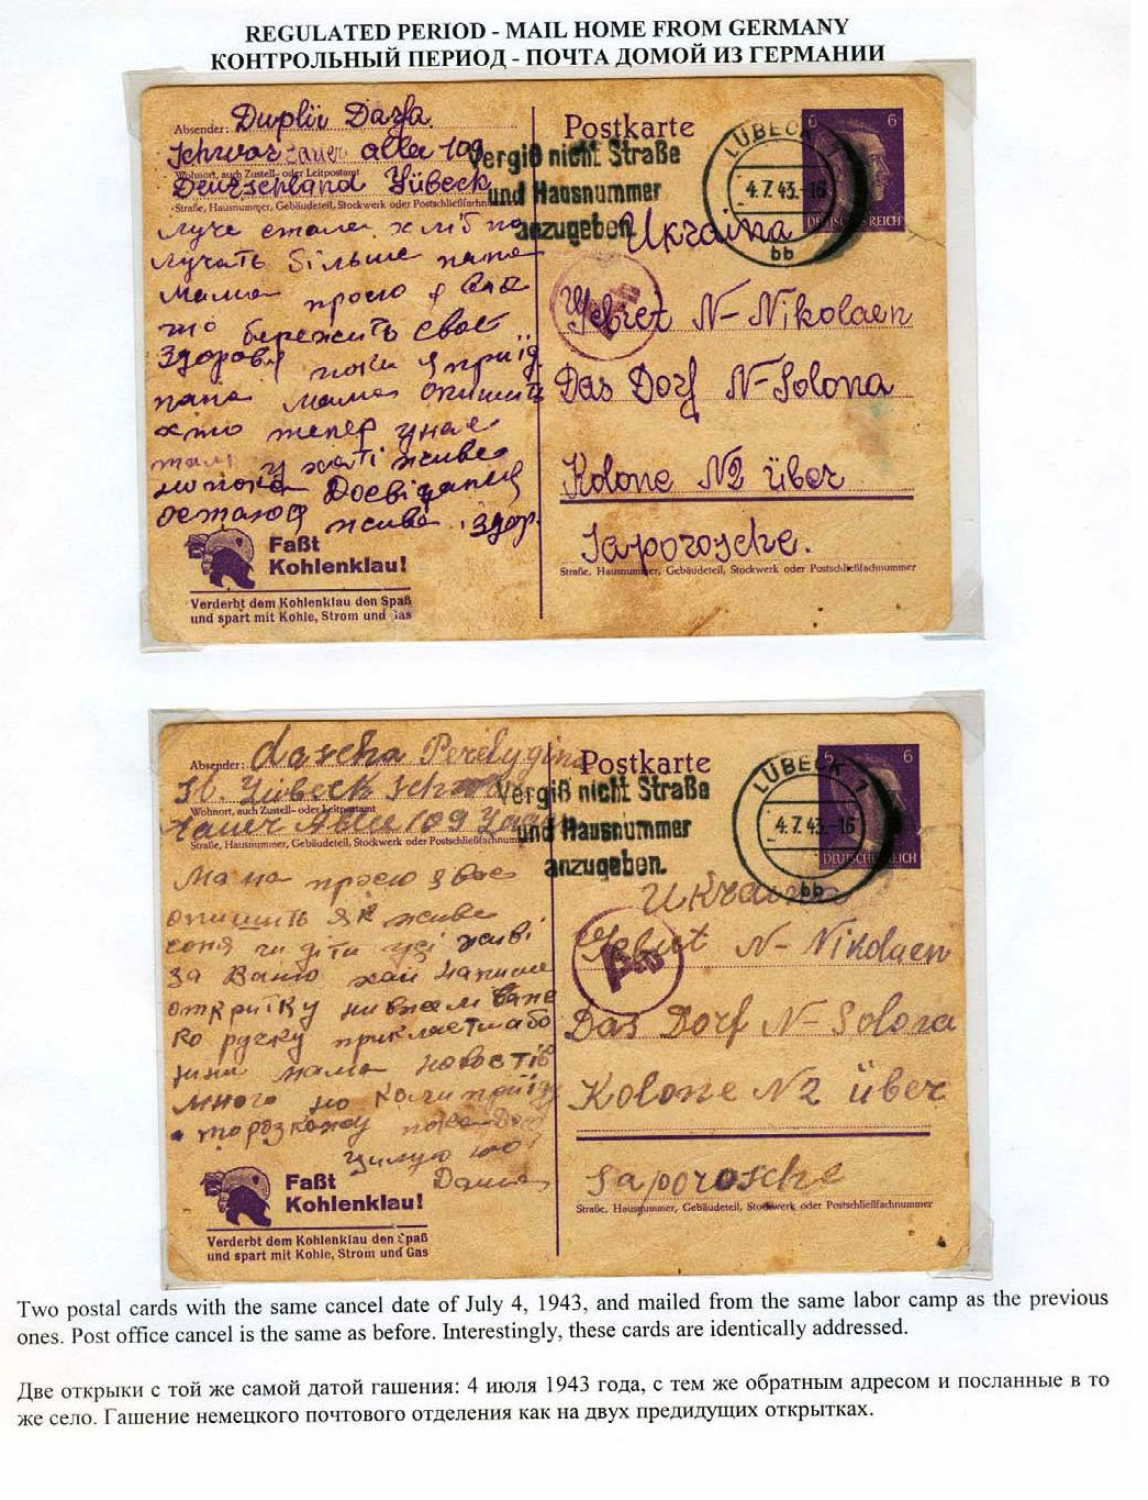 REGULATED PERIOD - MAIL HOME FROM GERMANY
КОНТРОЛЬНЫЙ ПЕРИОД - ПОЧТА ДОМОЙ ИЗ ГЕРМАНИИ
Absender: Duplii Darja
allee 109
Wohnort, auch Zustell- oder Leitpostamt
Deutschland Lübeck
Straße, Hausnummer, Gebäudeteil, Stockwerk oder Postschließfachnu
луче стале хліб по
лучать більше папа
мама прошо я вас
що бережить своє
здоровя поки я приїд
папа мама опишить
хто тепер у нас
там у хаті живе
ну пока Досвіданія
остаюся жива здор.
Faßt
Kohlenklau!
Verderbt dem Kohlenklau den Spaß
und spart mit Kohle, Strom und Gas
Postkarte
Vergiß nicht Straße
und Hausnummer
anzugeben.
LÜBECK 1
4.7.43.-16
bb
6 6
DEUTSCHES REICH
Ukraina
Gebiet N-Nikolaen
Das Dorf N-Solona
Kolone N2 über
Saporosche.
Straße, Hausnummer, Gebäudeteil, Stockwerk oder Postschließfachnummer
Absender: dascha Perelygina
Lübeck
Wohnort, auch Zustell- oder Leitpostamt
tauer Allee 109
Straße, Hausnummer, Gebäudeteil, Stockwerk oder Postschließfachnum
Мама прошо я вас
опишить як живе
соня чи діти усі живі
за Ваню хай напише
открпітку
ко ручку
мама новостів
много но коли приїду
то розкажу пока
цилую
Даша
Faßt
Kohlenklau!
Verderbt dem Kohlenklau den Spaß
und spart mit Kohle, Strom und Gas
Postkarte
Vergiß nicht Straße
und Hausnummer
anzugeben.
LÜBECK 1
4.7.43.-16
bb
6 6
DEUTSCHES REICH
Ukraina
Gebiet N-Nikolaen
Das Dorf N-Solona
Kolone N2 über
Saporosche
Straße, Hausnummer, Gebäudeteil, Stockwerk oder Postschließfachnummer
Two postal cards with the same cancel date of July 4, 1943, and mailed from the same labor camp as the previous
ones. Post office cancel is the same as before. Interestingly, these cards are identically addressed.
Две открыки с той же самой датой гашения: 4 июля 1943 года, с тем же обратным адресом и посланные в то
же село. Гашение немецкого почтового отделения как на двух предидущих открытках.